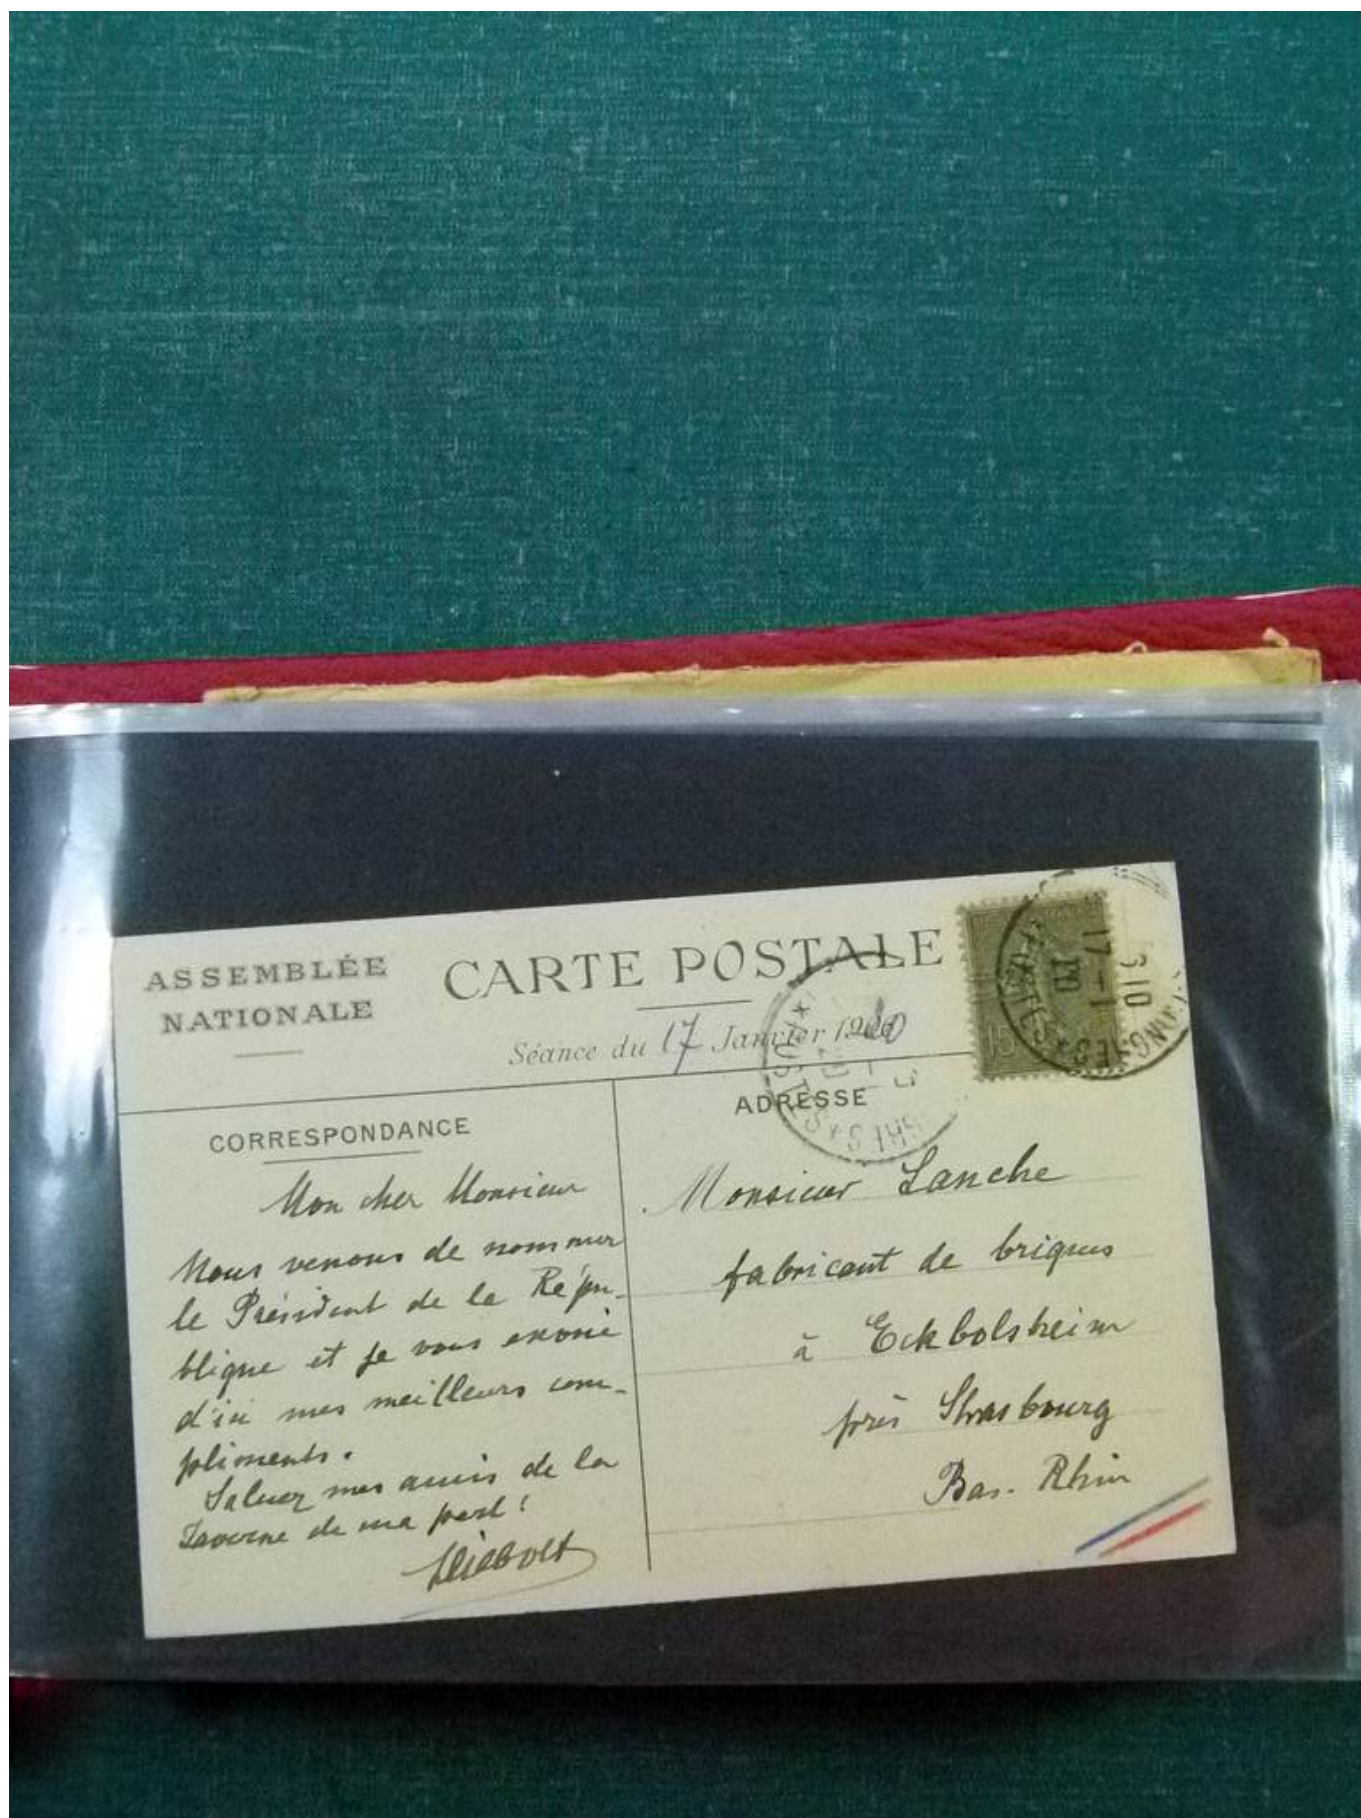 ASSEMBLÉE
NATIONALE
CARTE POSTALE
Séance du 17 Janvier
CORRESPONDANCE
Mon cher Monsieur
Nous venons de nommer
le Président de la Répu-
blique et je vous envoie
d'ici mes meilleurs com-
pliments.
Saluez mes amis de la
Taverne de ma part!
ADRESSE
Monsieur Lanche
fabricant de briques
à Eckbolsheim
près Strasbourg
Bas-Rhin
15
3 10
17 - 1